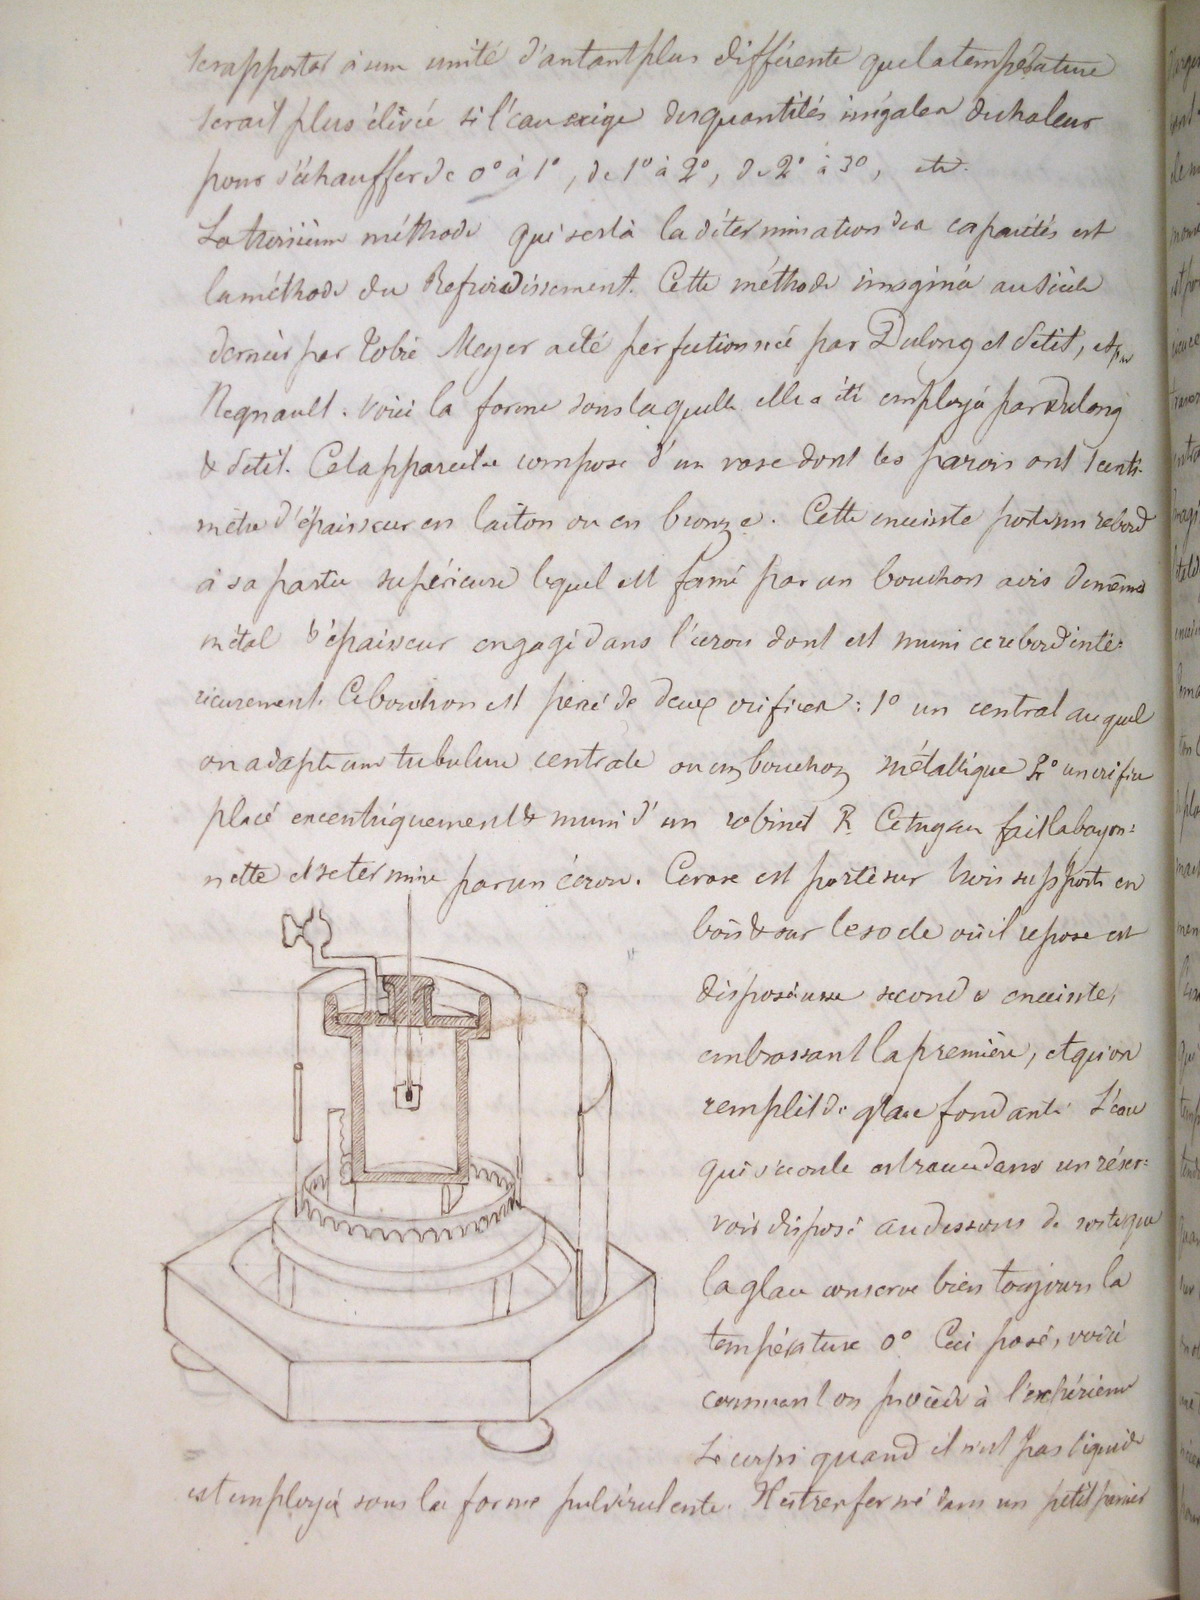 se rapporter à une unité d'autant plus différente que la température
serait plus élevée si l'eau exige des quantités inégales de chaleur
pour s'échauffer de 0° à 1°, de 1° à 2°, de 2° à 3°, etc.
La troisième méthode qui sert à la détermination des capacités est
la méthode du Refroidissement. Cette méthode imaginée au siècle
dernier par Tobie Mayer a été perfectionnée par Dulong et Petit, et par
Regnault. Voici la forme sous laquelle elle a été employée par Dulong
& Petit. Cet appareil se compose d'un vase dont les parois ont 1 centi-
mètre d'épaisseur en laiton ou en bronze. Cette enceinte porte un rebord
à sa partie supérieure lequel est fermé par un bouchon à vis de même
métal & épaisseur engagé dans l'écrou dont est muni ce rebord inté-
rieurement. Ce bouchon est percé de deux orifices : 1° un central auquel
on adapte une tubulure centrale ou un bouchon métallique 2° un orifice
placé excentriquement & muni d'un robinet R. Ce tuyau fait la bayon-
nette et se termine par un écrou. Ce vase est porté sur trois supports en
bois & sur le socle où il repose est
disposée une seconde enceinte,
embrassant la première, et qu'on
remplit de glace fondante. L'eau
qui s'écoule est reçue dans un réser-
voir disposé au dessous de sorte que
la glace conserve bien toujours la
température 0° Ceci posé, voici
comment on procède à l'expérience
Le corps quand il n'est pas liquide
est employé sous la forme pulvérulente. Il est renfermé dans un petit panier